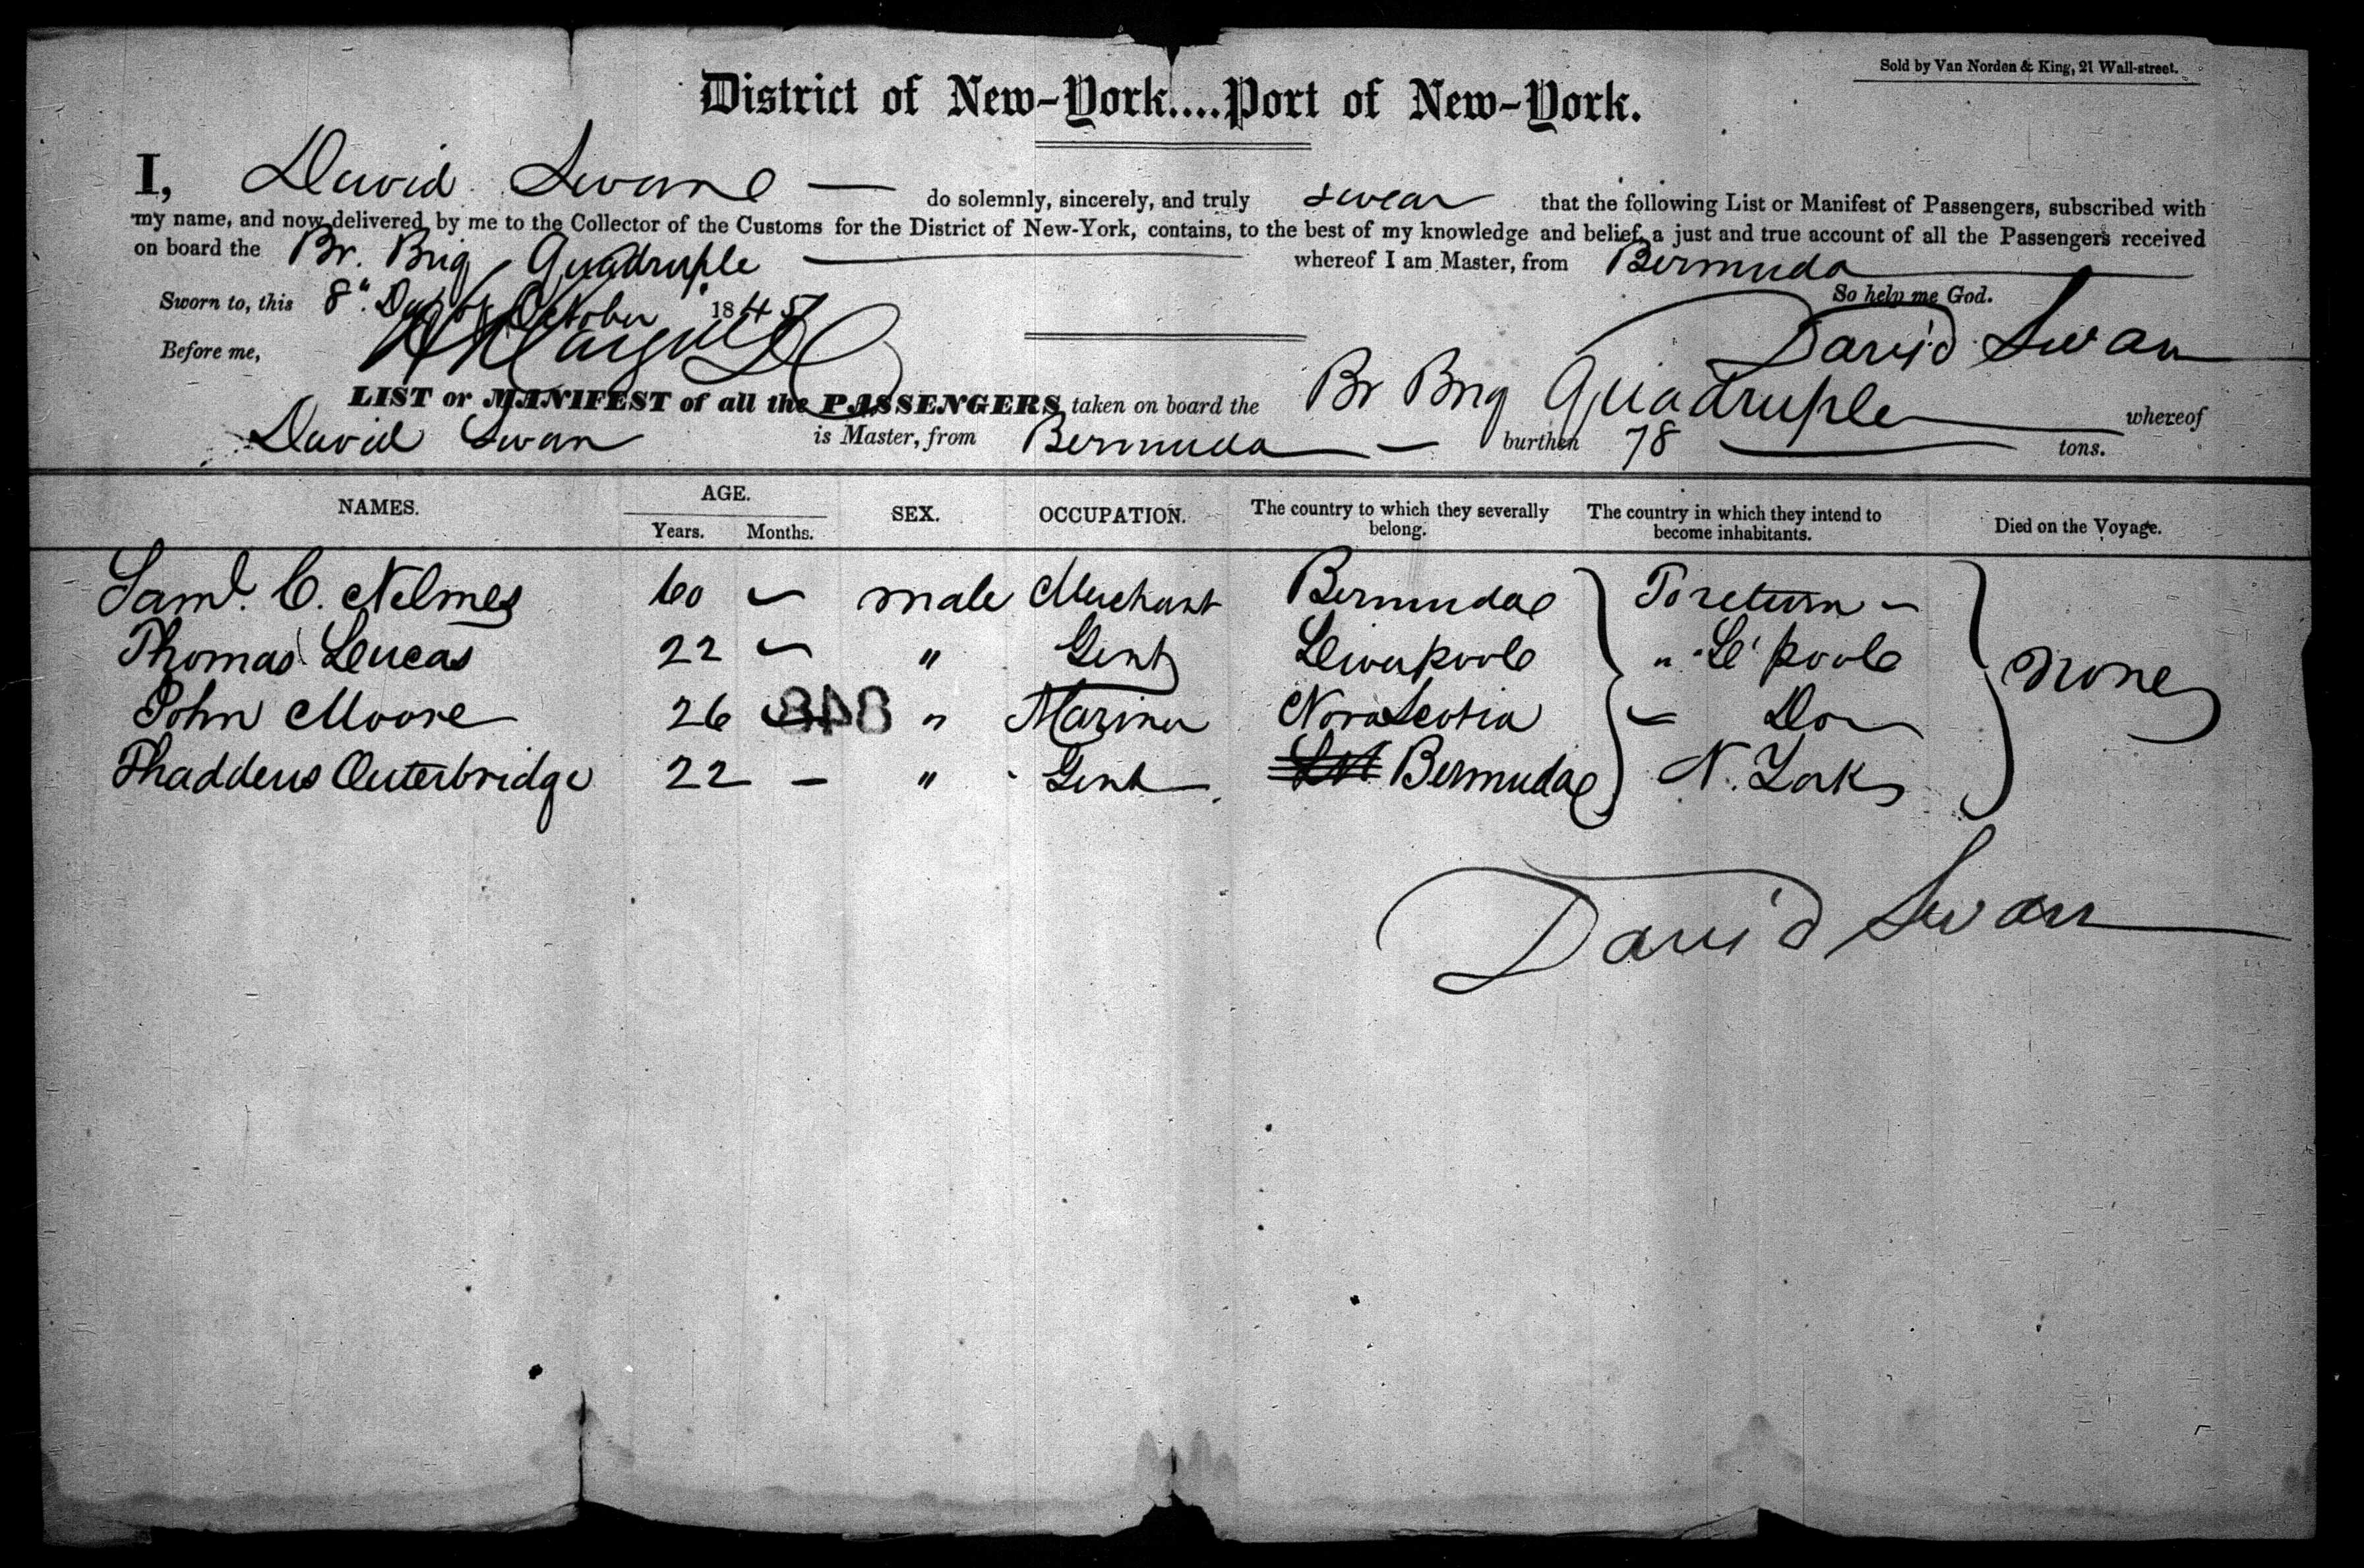 Sold by Van Norden & King, 21 Wall-street.
District of New-York....Port of New-York.
I, David Swane — do solemnly, sincerely, and truly swear that the following List or Manifest of Passengers, subscribed with
my name, and now delivered by me to the Collector of the Customs for the District of New-York, contains, to the best of my knowledge and belief, a just and true account of all the Passengers received
on board the Br. Brig Quadruple — whereof I am Master, from Bermuda
So help me God.
Sworn to, this 8" Day of October 1845
David Swan
Before me,
LIST or MANIFEST of all the PASSENGERS taken on board the Br Brig Quadruple whereof
David Swan is Master, from Bermuda — burthen 78 tons.
NAMES. AGE. Years. Months. SEX. OCCUPATION. The country to which they severally belong. The country in which they intend to become inhabitants. Died on the Voyage.
Saml. C. Nelmes 60 – male Merchant Bermuda To return –
Thomas Lucas 22 – " Gent Liverpoole " L'poole
none
John Moore 26 – 848 " Mariner Nova Scotia – Do
Thaddeus Outerbridge 22 – " Gent Bermuda N. York
David Swan